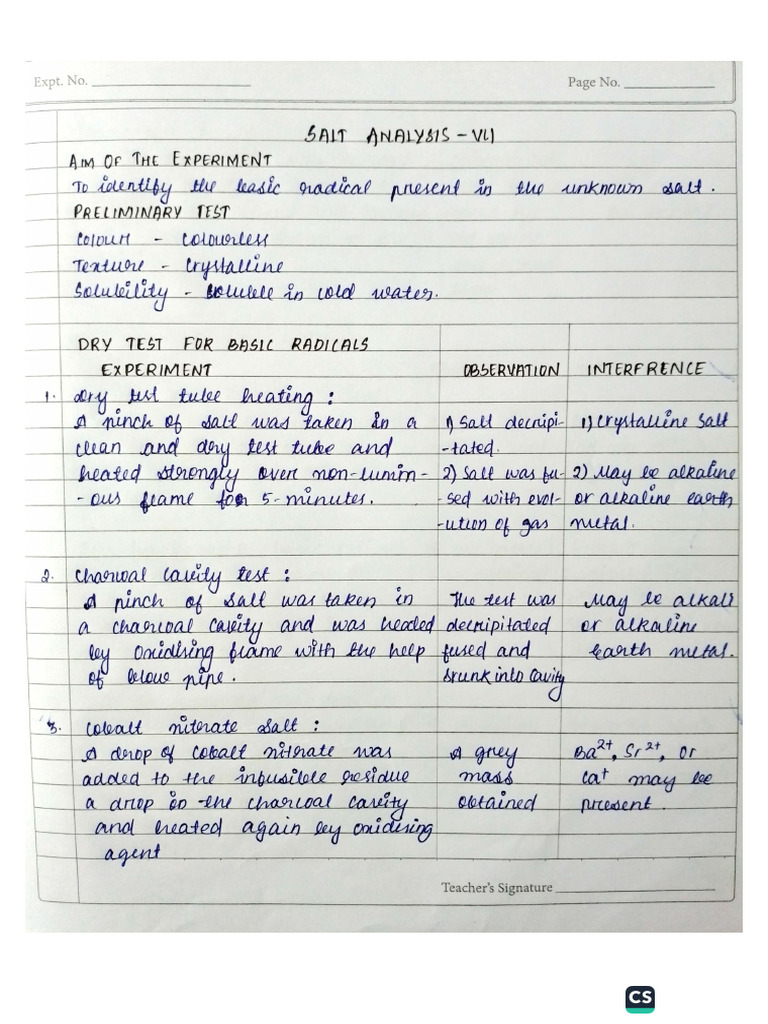 Expt. No.
Page No.
SALT ANALYSIS - VI)
AIM OF THE EXPERIMENT
To identify the basic radical present in the unknown salt.
PRELIMINARY TEST
Colour - Colourless
Texture - Crystalline
Solubility - Soluble in cold water.
DRY TEST FOR BASIC RADICALS
EXPERIMENT OBSERVATION INTERFRENCE
1. Dry test tube heating :
A pinch of salt was taken in a 1) Salt decripi- 1) Crystalline Salt
clean and dry test tube and -tated.
heated strongly over non-lumin- 2) Salt was fu- 2) May be alkaline
-ous flame for 5-minutes. -sed with evol- or alkaline earth
-ution of gas metal.
2. Charcoal Cavity test :
A pinch of salt was taken in The test was May be alkali
a charcoal cavity and was heated decripitated or alkaline
by oxidising flame with the help fused and earth metal.
of blow pipe. srunk into cavity
3. Cobalt nitrate salt :
A drop of cobalt nitrate was A grey Ba²⁺, Sr²⁺, or
added to the infusible residue mass Ca⁺ may be
a drop in the charcoal cavity obtained present.
and heated again by oxidising
agent
Teacher's Signature
CS